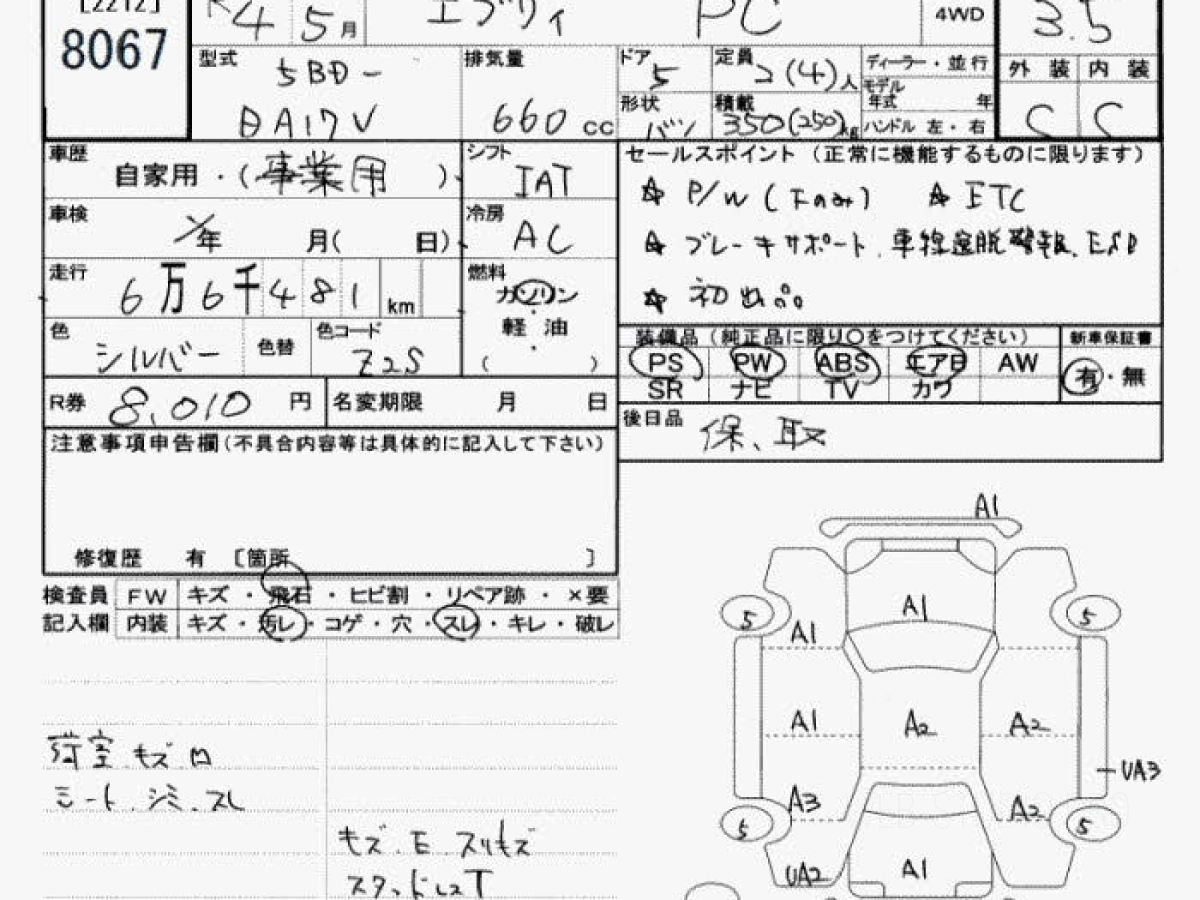 [2212]
8067
R 4 5 月 エブリィ PC 4WD 3.5
型式 5BD - 排気量 ドア 5 定員 2(4)人 ディーラー・並行 外装 内装
DA17V 660 cc 形状 バン 積載 350(250)kg モデル年式 年 C C
ハンドル 左・右
車歴 自家用・(事業用) シフト IAT セールスポイント(正常に機能するものに限ります)
☆ P/W(Fのみ) ☆ ETC
車検 年 月( 日) 冷房 AC
☆ ブレーキサポート、車線逸脱警報、ESP
走行 6万6千481 km 燃料 ガソリン
☆ 初出品。
軽油
( )
色 シルバー 色替 色コード Z2S
装備品(純正品に限り〇をつけてください) 新車保証書
PS PW ABS エアB AW 有・無
SR ナビ TV カワ
R券 8,010 円 名変期限 月 日
後日品 保、取
注意事項申告欄(不具合内容等は具体的に記入して下さい)
修復歴 有 〔箇所 〕
検査員 FW キズ・飛石・ヒビ割・リペア跡・×要
記入欄 内装 キズ・汚レ・コゲ・穴・スレ・キレ・破レ
荷室キズ凹
シート、シミ、スレ
キズ、E、スリキズ
スタッドレスT
A1
A1
5 5
A1
A1 A2 A2
UA3
A3 A2
5 5
UA2 A1